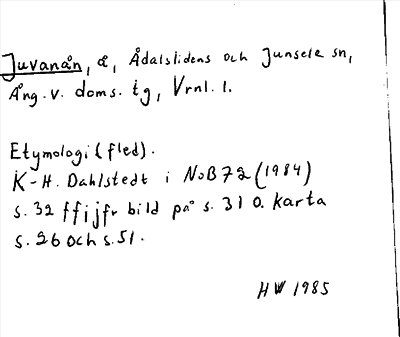 Juvanån, å, Ådalslidens och Junsele sn,
Ång. v. doms. tg, Vrnl. l.
Etymologi (fled).
K-H. Dahlstedt i NoB 72 (1984)
s. 32 ff; jfr bild på s. 31 o. karta
s. 26 och s. 51.
HW 1985